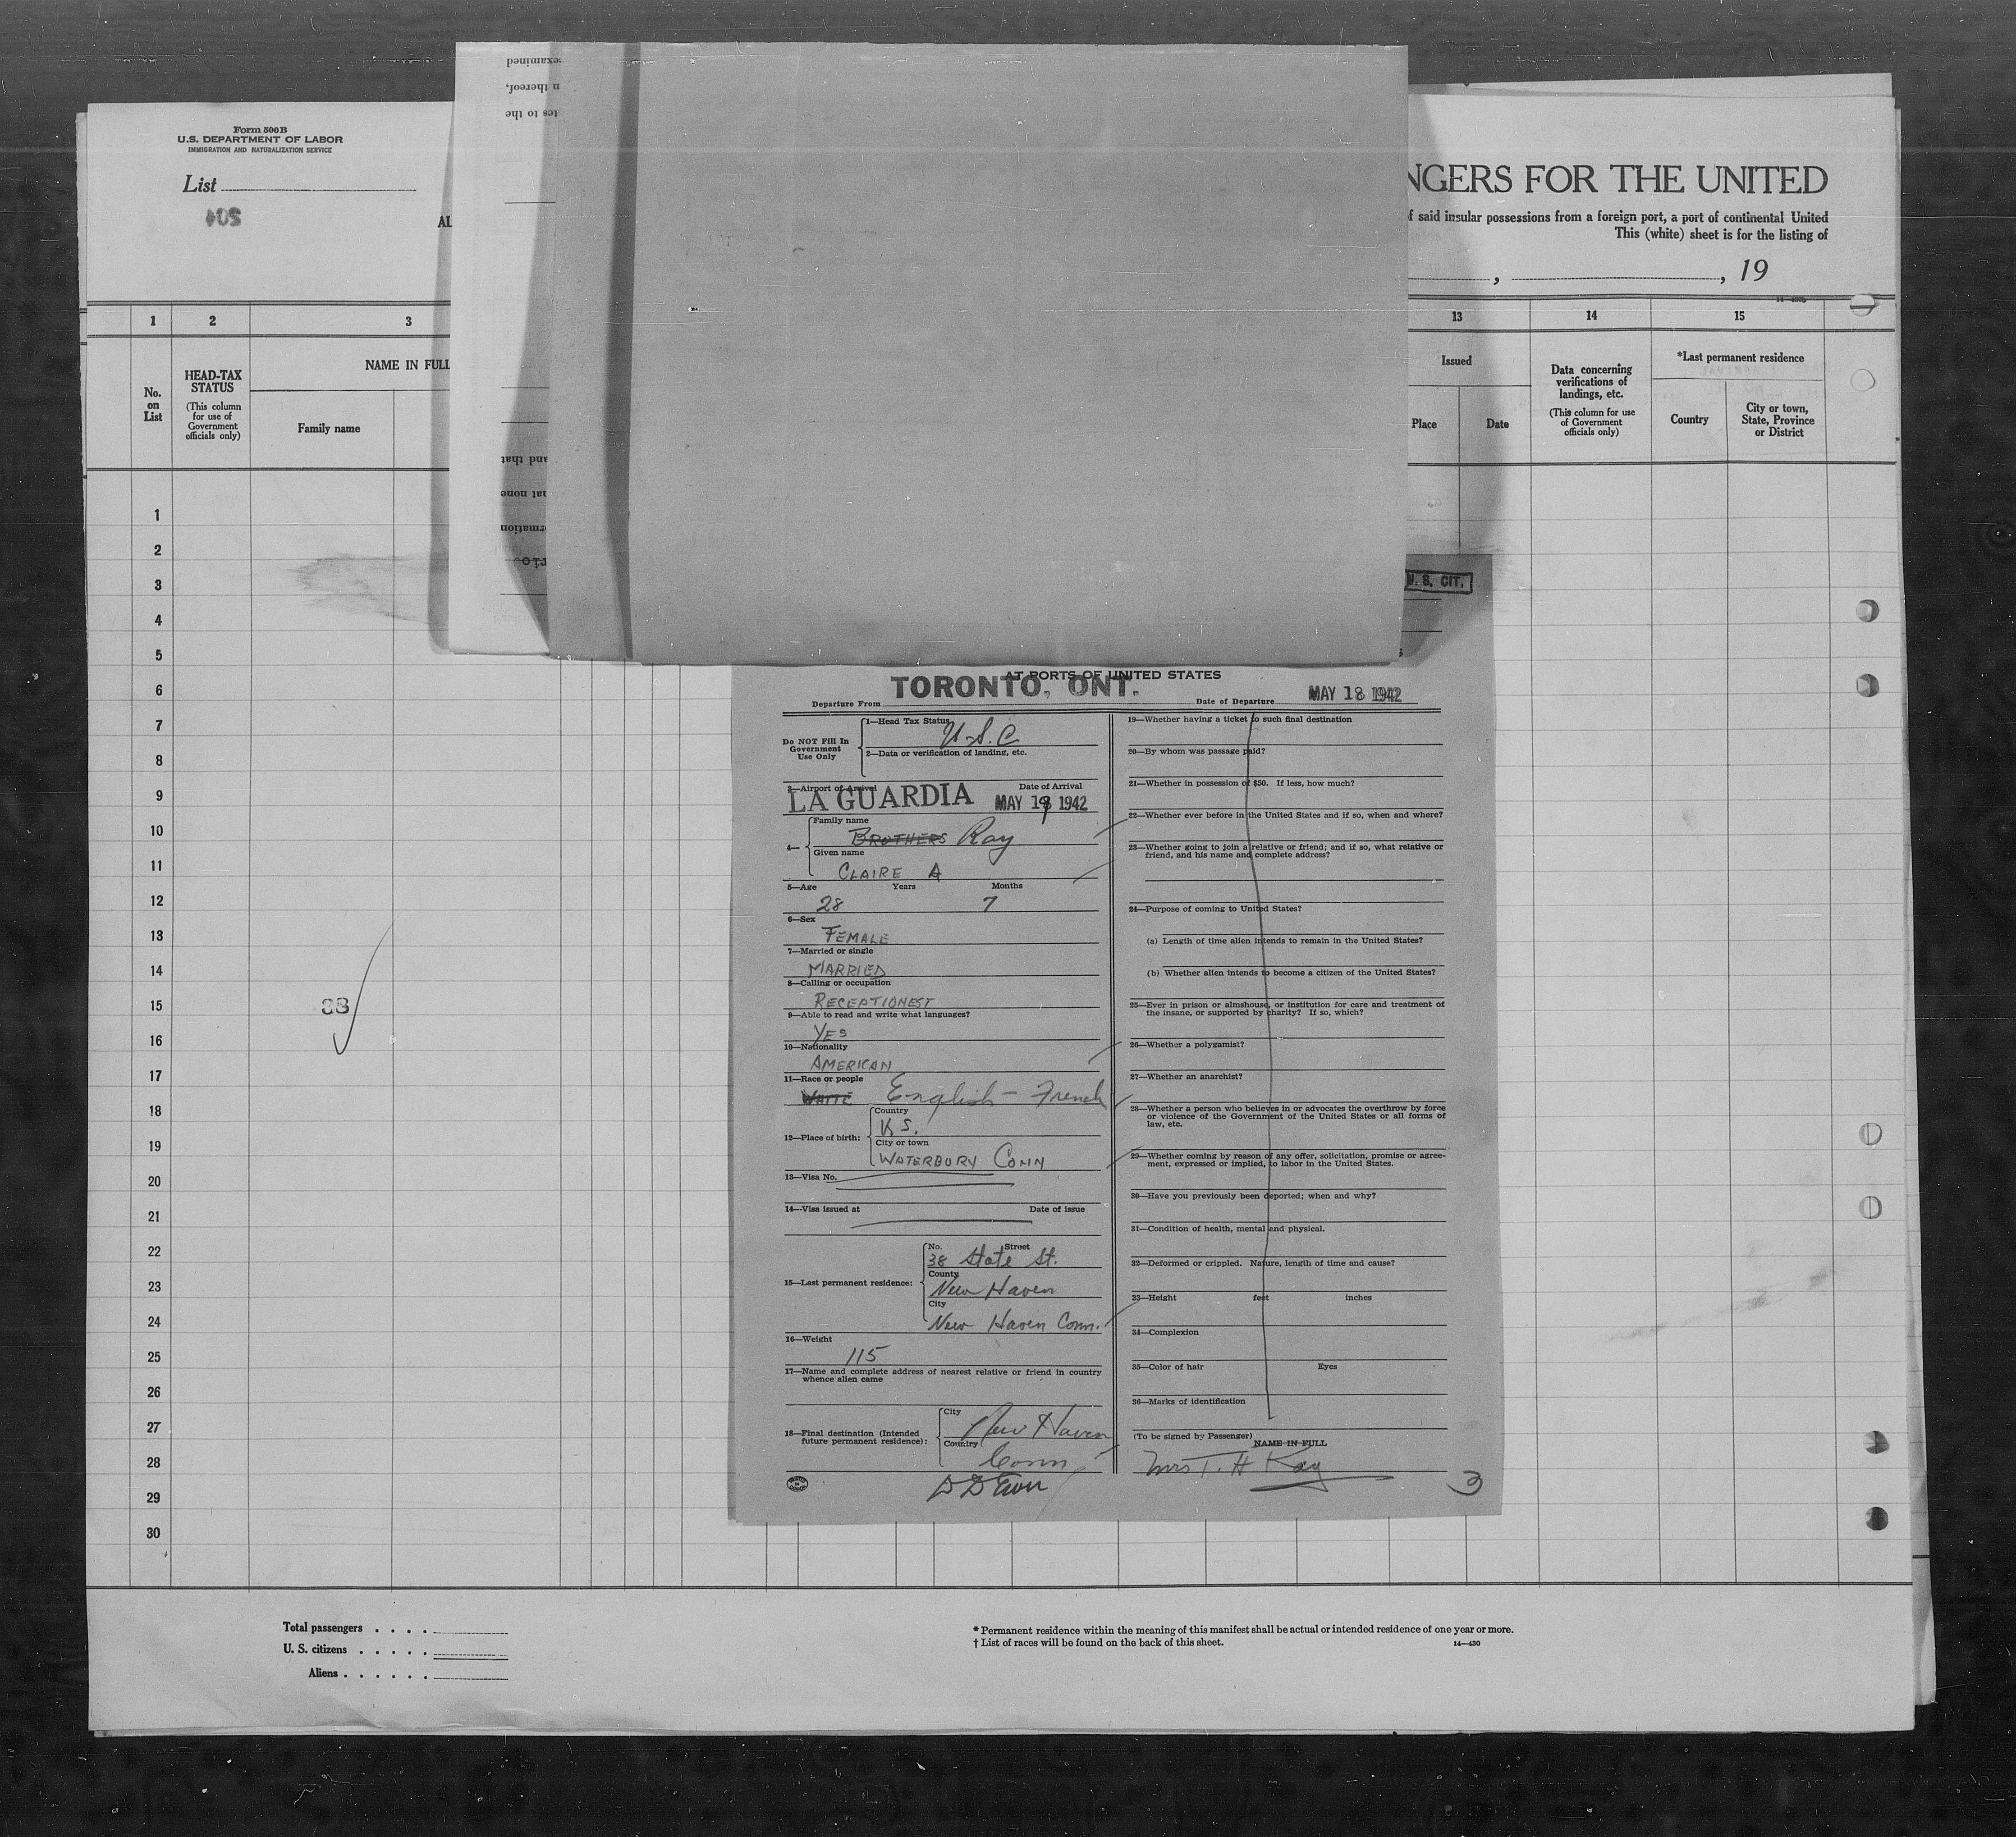 Form 500B
U.S. DEPARTMENT OF LABOR
IMMIGRATION AND NATURALIZATION SERVICE
List
504
AL
examined
n thereof,
tes to the
and that
at none
rmation
NGERS FOR THE UNITED
f said insular possessions from a foreign port, a port of continental United
This (white) sheet is for the listing of
, , 19
1 2 3 13 14 15
No. on List
HEAD-TAX STATUS
(This column for use of Government officials only)
NAME IN FULL
Family name
Issued
Place Date
Data concerning verifications of landings, etc.
(This column for use of Government officials only)
*Last permanent residence
Country
City or town, State, Province or District
1
2
3
4
5
6
7
8
9
10
11
12
13
14
15
16
17
18
19
20
21
22
23
24
25
26
27
28
29
30
33
U. S. CIT.
AT PORTS OF UNITED STATES
TORONTO, ONT. MAY 18 1942
Departure From Date of Departure
Do NOT Fill In Government Use Only
1—Head Tax Status
U.S.C
2—Data or verification of landing, etc.
3—Airport of Arrival Date of Arrival
LA GUARDIA MAY 19 1942
4—
Family name
BROTHERS Ray
Given name
CLAIRE A
5—Age Years Months
28 7
6—Sex
FEMALE
7—Married or single
MARRIED
8—Calling or occupation
RECEPTIONEST
9—Able to read and write what languages?
YES
10—Nationality
AMERICAN
11—Race or people
WHITE English - French
12—Place of birth:
Country
U.S.
City or town
WATERBURY CONN
13—Visa No.
14—Visa issued at Date of issue
15—Last permanent residence:
No. Street
38 State St.
County
New Haven
City
New Haven Conn.
16—Weight
115
17—Name and complete address of nearest relative or friend in country
whence alien came
18—Final destination (Intended
future permanent residence):
City
New Haven
Country
Conn
19—Whether having a ticket to such final destination
20—By whom was passage paid?
21—Whether in possession of $50. If less, how much?
22—Whether ever before in the United States and if so, when and where?
23—Whether going to join a relative or friend; and if so, what relative or
friend, and his name and complete address?
24—Purpose of coming to United States?
(a) Length of time alien intends to remain in the United States?
(b) Whether alien intends to become a citizen of the United States?
25—Ever in prison or almshouse, or institution for care and treatment of
the insane, or supported by charity? If so, which?
26—Whether a polygamist?
27—Whether an anarchist?
28—Whether a person who believes in or advocates the overthrow by force
or violence of the Government of the United States or all forms of
law, etc.
29—Whether coming by reason of any offer, solicitation, promise or agree-
ment, expressed or implied, to labor in the United States.
30—Have you previously been deported; when and why?
31—Condition of health, mental and physical.
32—Deformed or crippled. Nature, length of time and cause?
33—Height feet inches
34—Complexion
35—Color of hair Eyes
36—Marks of identification
(To be signed by Passenger)
NAME IN FULL
Mrs T. H Ray
3
Total passengers . . . .
U. S. citizens . . . . .
Aliens . . . . . .
* Permanent residence within the meaning of this manifest shall be actual or intended residence of one year or more.
† List of races will be found on the back of this sheet. 14—430